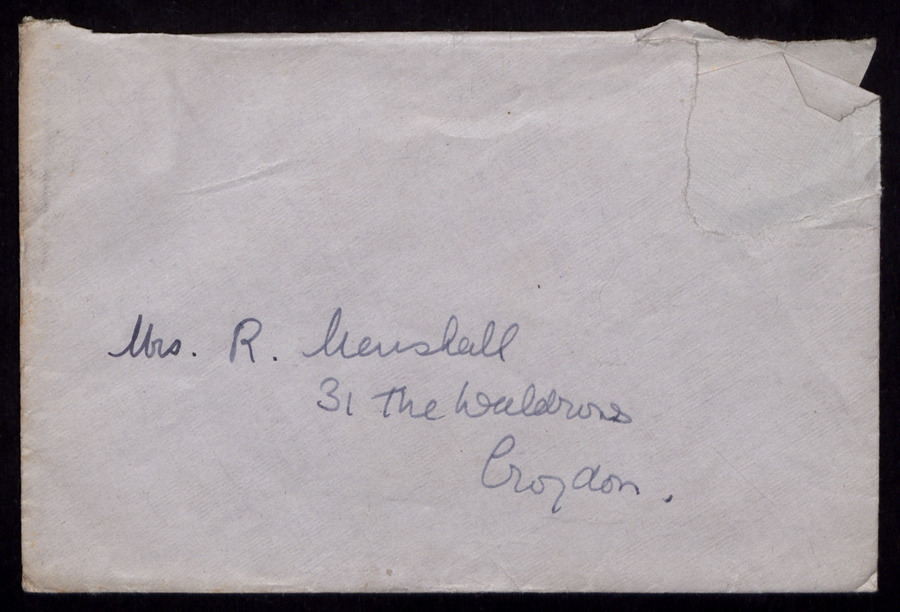 Mrs. R. Henshall
31 The Waldrons
Croydon.